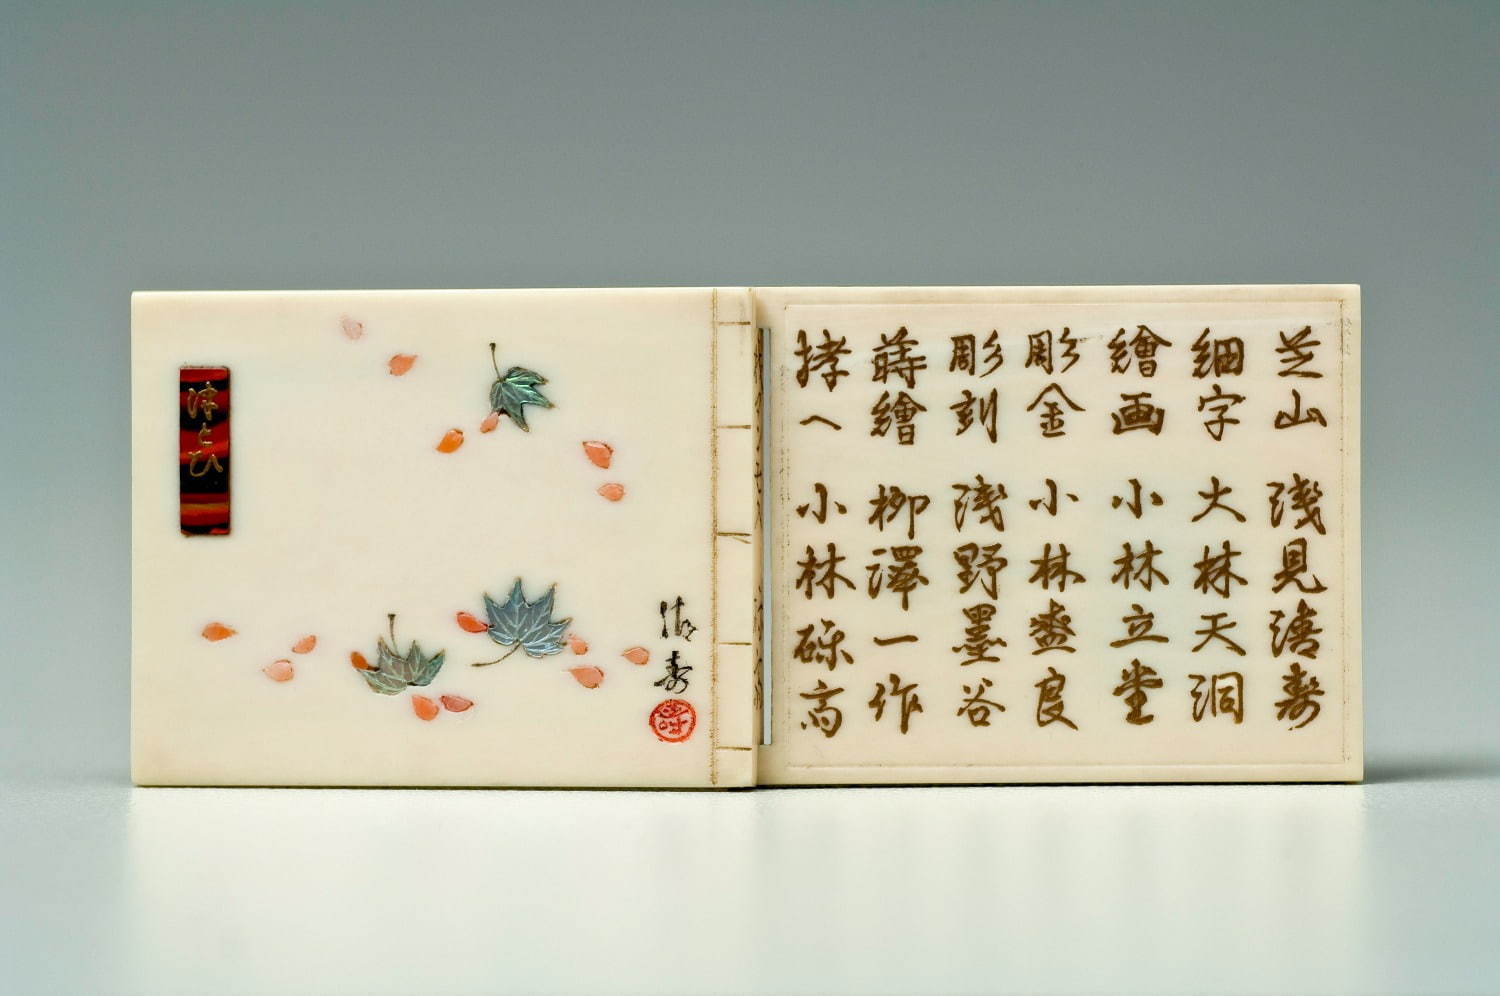 芝山 淺見清壽
細字 大林天洞
繪画 小林立堂
彫金 小林盛良
彫刻 淺野墨谷
蒔繪 柳澤一作
拵へ 小林礫高
清寿
津とひ